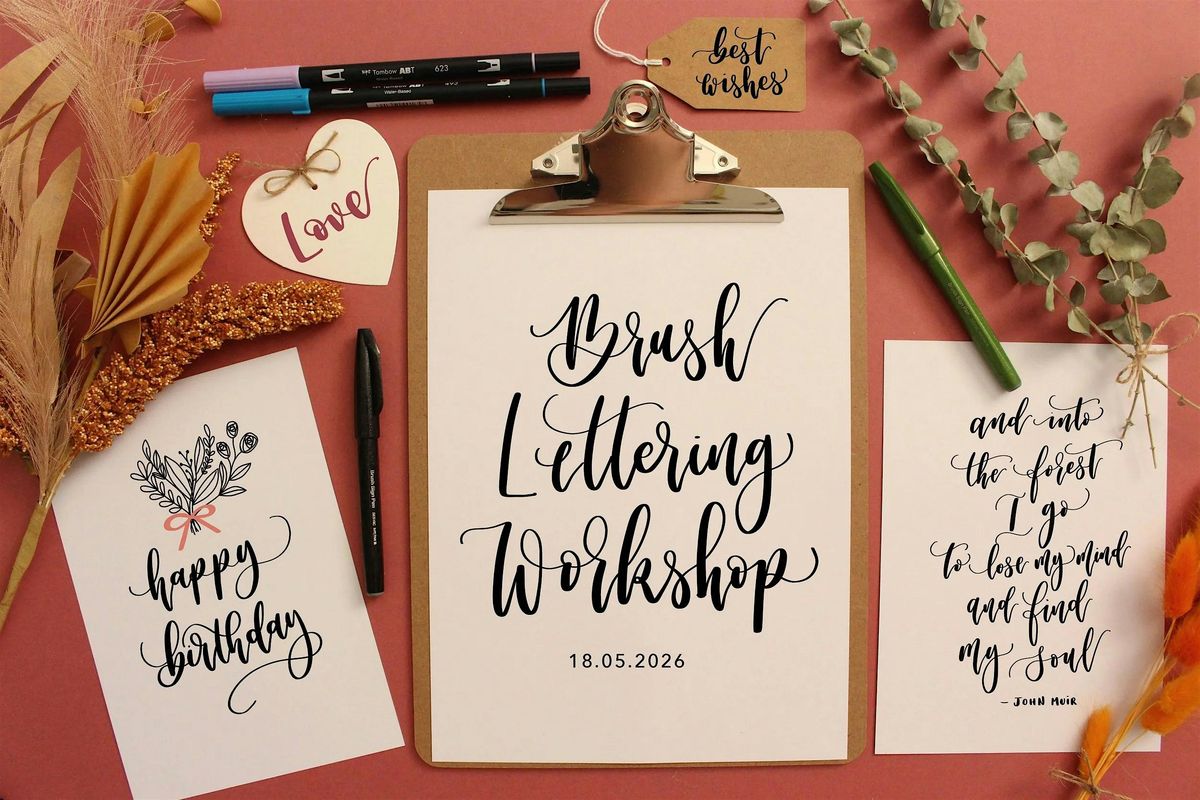 Tombow ABT 623
Water-Based
best
wishes
Love
Brush
Lettering
Workshop
18.05.2026
happy
birthday
Brush Sign Pen
and into
the forest
I go
to lose my mind
and find
my soul
- JOHN MUIR